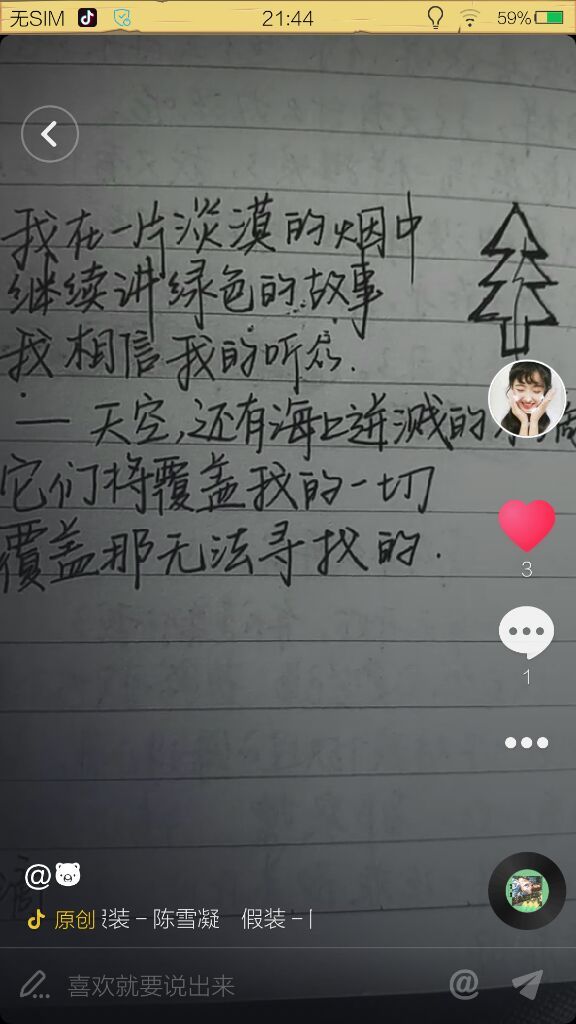 无SIM 21:44 59%
我在一片淡漠的烟中
继续讲绿色的故事
我相信我的听众.
— 天空,还有海上迸溅的水滴
它们将覆盖我的一切
覆盖那无法寻找的.
3
1
@
原创 假装 - 陈雪凝 假装 -
喜欢就要说出来 @